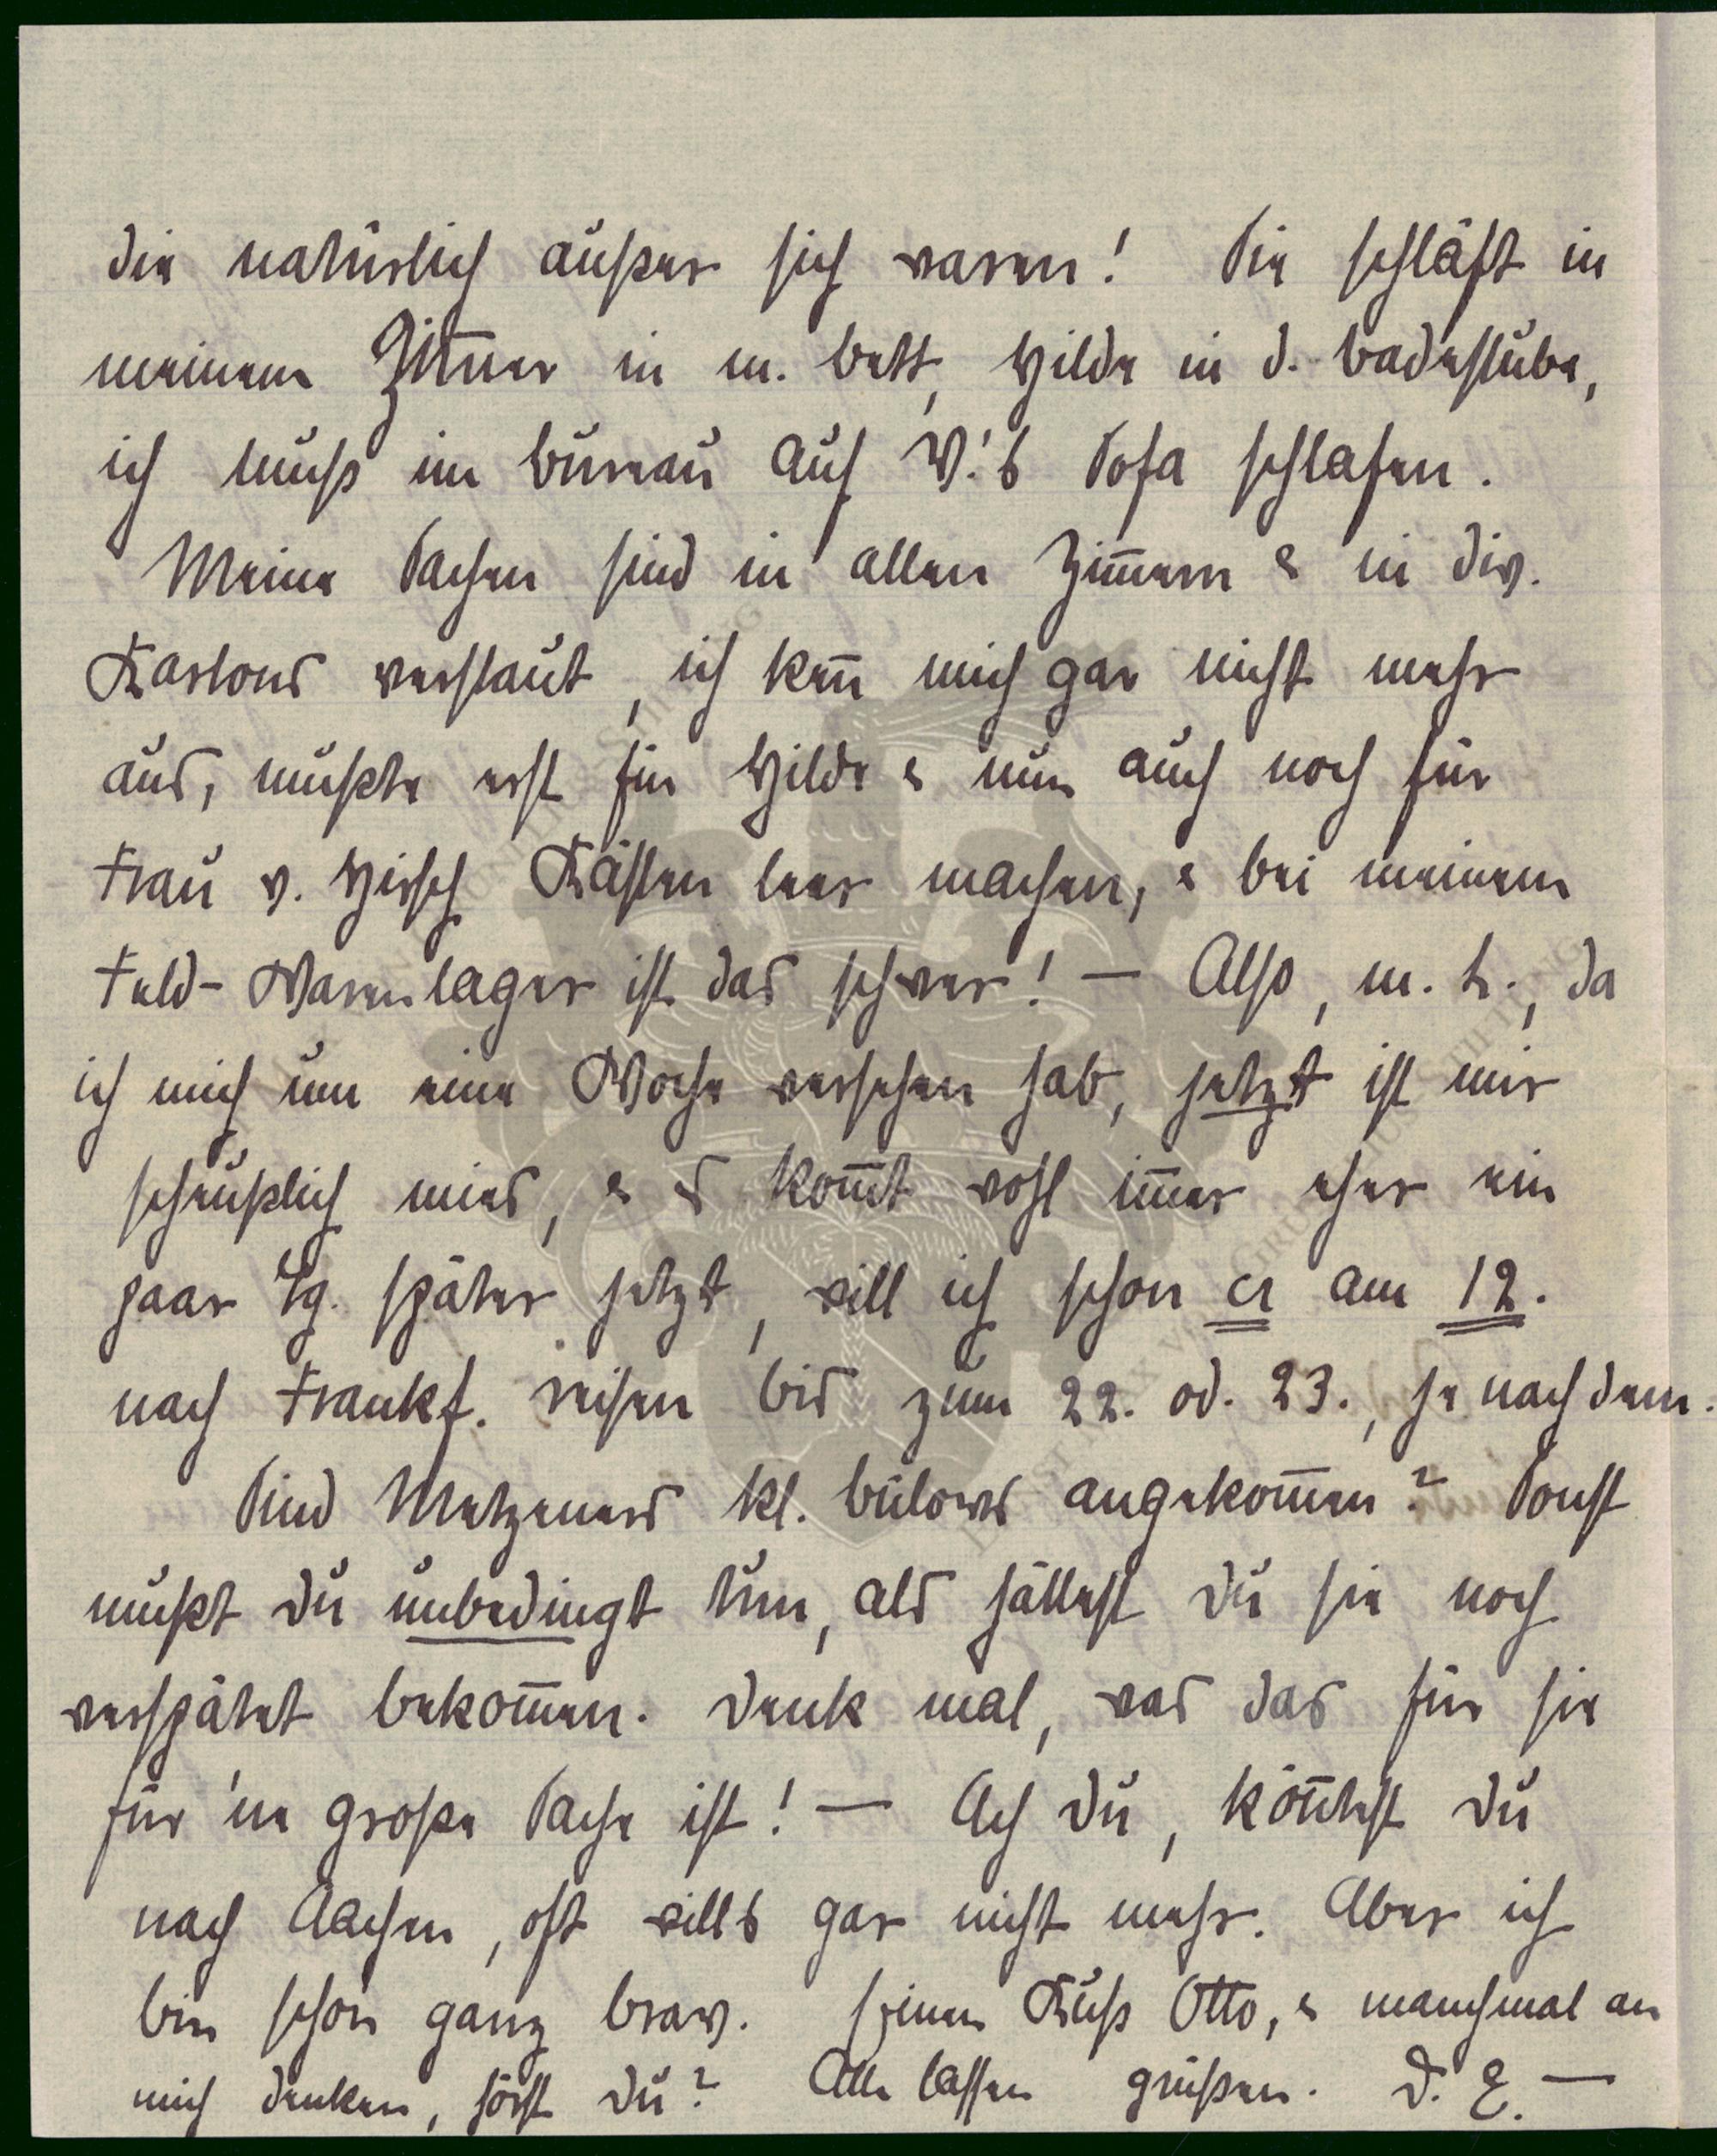 die natürlich außer sich waren! Sie schläft in
meinem Zim̅er in m. Bett, Hilde in d. Badestube,
ich muß im Bureau auf V.'s Sofa schlafen.
Meine Sachen sind in allen Zim̅ern & in div.
Kartons verstaut, ich ken̅ mich gar nicht mehr
aus, mußte erst für Hilde & nun auch noch für
Frau v. Hirsch Kästen leer machen, & bei meinem
Feld-Warenlager ist das schwer! — Also, m. L., da
ich mich um eine Woche versehen hab, jetzt ist mir
scheußlich mies, & es kom̅t wohl im̅er eher ein
paar Tg. später jetzt, will ich schon cr am 12.
nach Frankf. reisen bis zum 22. od. 23., je nachdem.
Sind Metzeners kl. Bülows angekom̅en? Sonst
mußt Du unbedingt tun, als hättest Du sie noch
verspätet bekom̅en. Denk mal, was das für sie
für 'ne große Sache ist! — Ach Du, kön̅test Du
nach Aachen, oft will's gar nicht mehr. Aber ich
bin schon ganz brav. Einen Kuß Otto, & manchmal an
mich denken, hörst Du? Alle lassen grüßen. D. E. —